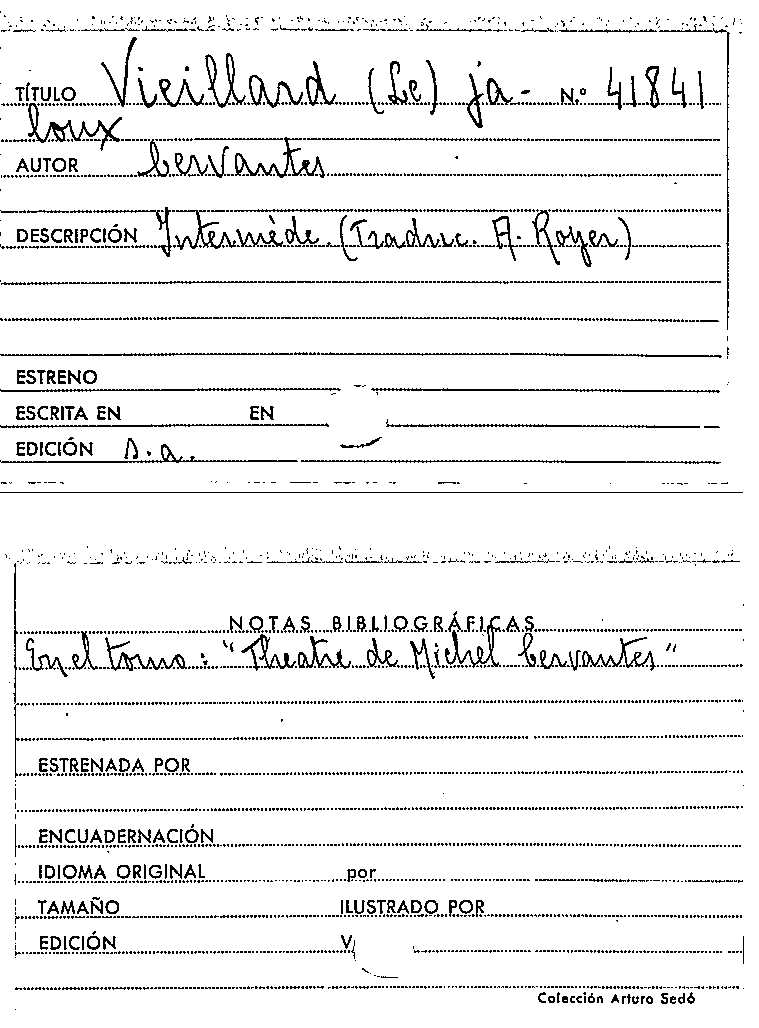 TÍTULO Vieillard (Le) ja- N.º 41841
loux
AUTOR Cervantes
DESCRIPCIÓN Intermède. (Traduc. A. Royer)
ESTRENO
ESCRITA EN EN
EDICIÓN s.a.
NOTAS BIBLIOGRÁFICAS
En el tomo: "Theatre de Michel Cervantes"
ESTRENADA POR
ENCUADERNACIÓN
IDIOMA ORIGINAL por
TAMAÑO ILUSTRADO POR
EDICIÓN V
Colección Arturo Sedó